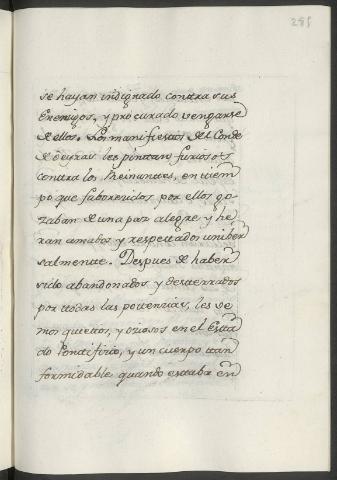 285
se hayan indignado contra sus
Enemigos, y procurado vengarse
de ellos. Los manifiestos del Conde
de Oeyras les pintan furiosos
contra los Reinantes, en tiem
po que faborecidos por ellos go
zaban de una paz alegre y he
ran amados y respectados uniber
salmente. Despues de haber
sido abandonados, y desterrados
por todas las potenzias, les ve
mos quietos, y oziosos en el Esta
do Pontifizio, y un cuerpo tan
formidable quando estaba en